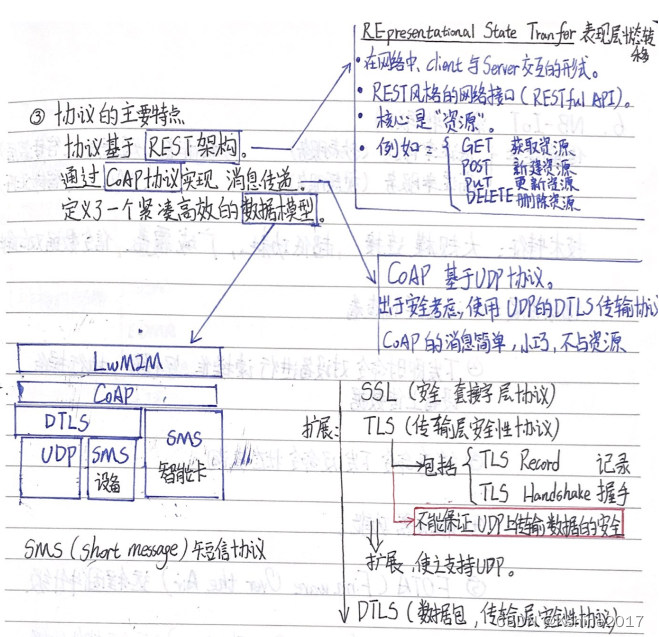 REpresentational State Tranfer 表现层状态转移
• 在网络中、client 与 Server 交互的形式。
• REST风格的网络接口 (RESTful API)。
• 核心是"资源"。
• 例如:
GET 获取资源
POST 新建资源
PUT 更新资源
DELETE 删除资源
③ 协议的主要特点
协议基于 REST架构。
通过 CoAP协议实现 消息传递。
定义了一个紧凑高效的数据模型。
CoAP 基于UDP协议。
出于安全考虑,使用 UDP的DTLS 传输协议
CoAP的消息简单,小巧,不占资源
LwM2M
CoAP
DTLS
UDP
SMS
设备
SMS
智能卡
SMS (short message) 短信协议
扩展:
SSL (安全 套接字层协议)
TLS (传输层安全性协议)
包括
TLS Record 记录
TLS Handshake 握手
不能保证 UDP上传输数据的安全
扩展,使之支持UDP。
DTLS (数据包,传输层安全性协议)